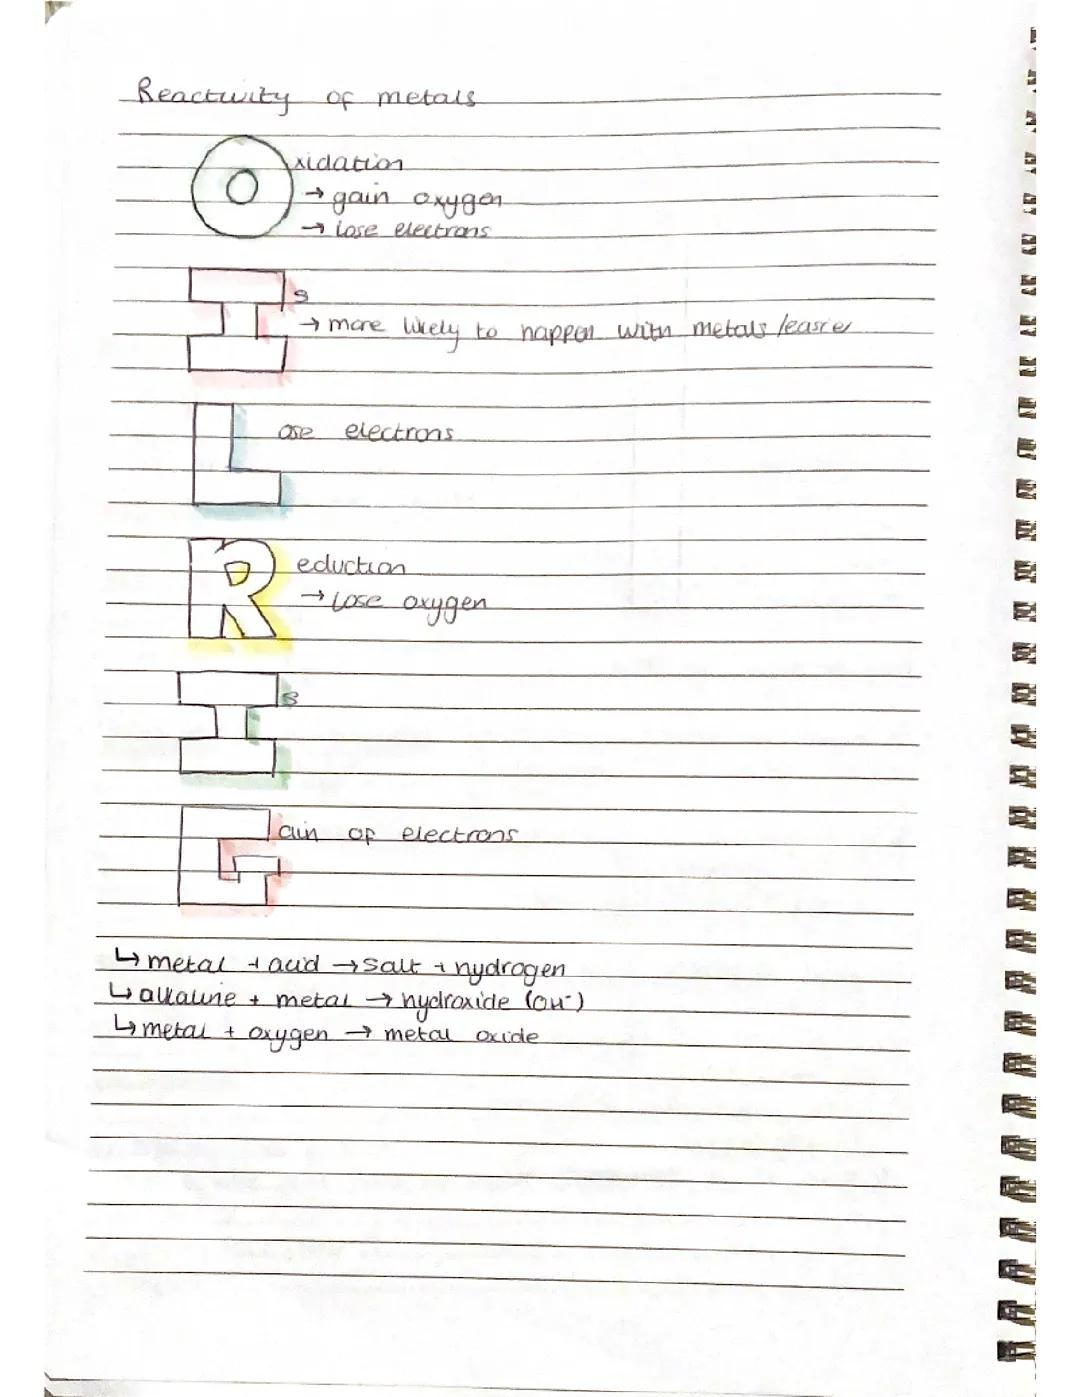 Reactivity of metals
Oxidation
→ gain oxygen
→ lose electrons
Is
→ more likely to happen with metals /easier
Lose electrons
Reduction
→ Lose oxygen
Is
Gain of electrons
↳ metal + acid → salt + hydrogen
↳ alkaline + metal → hydroxide (OH⁻)
↳ metal + oxygen → metal oxide